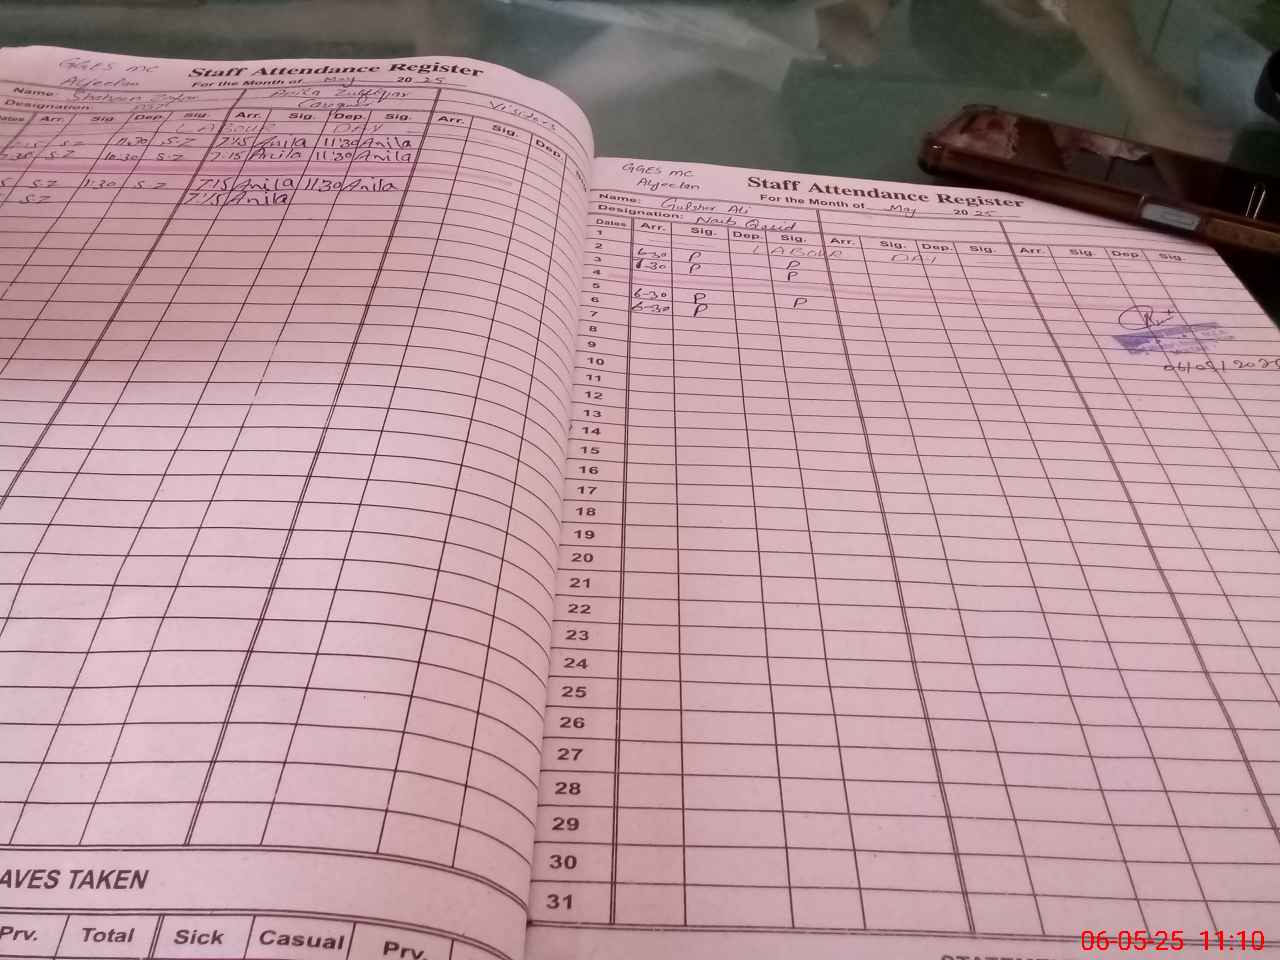 GGES MC
Staff Attendance Register
For the Month of May 2025
Name: Shaheen
Designation: PST
Anila Zulfiqar
Caregiver
Visiters
Dates Arr. Sig. Dep. Sig. Arr. Sig. Dep. Sig. Arr. Sig. Dep.
LABOUR DAY
S.Z 11.30 S.Z 7:15 Anila 11:30 Anila
S.Z 10.30 S.Z 7:15 Anila 11:30 Anila
S.Z 1:30 S.Z 7:15 Anila 11:30 Anila
S.Z 7:15 Anila
AVES TAKEN
Prv. Total Sick Casual Prv.
GGES MC
Staff Attendance Register
For the Month of May 2025
Name: Gulsher Ali
Designation: Naib Qasid
Dates Arr. Sig. Dep. Sig. Arr. Sig. Dep. Sig. Arr. Sig. Dep. Sig.
1 LABOUR DAY
2 6-30 P P
3 6-30 P P
4
5 6-30 P P
6 6-30 P
7
8
9
10
11
12
13
14
15
16
17
18
19
20
21
22
23
24
25
26
27
28
29
30
31
06/05/2025
06-05-25 11:10